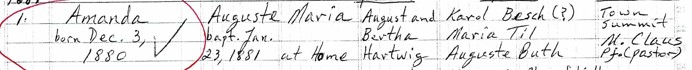 1. Amanda Auguste Maria August and Karol Besch (?) Town
born Dec. 3, bapt. Jan. Bertha Maria Til Summit
1880 23, 1881 at Home Hartwig Auguste Buth M. Claus
Pf. (pastor)